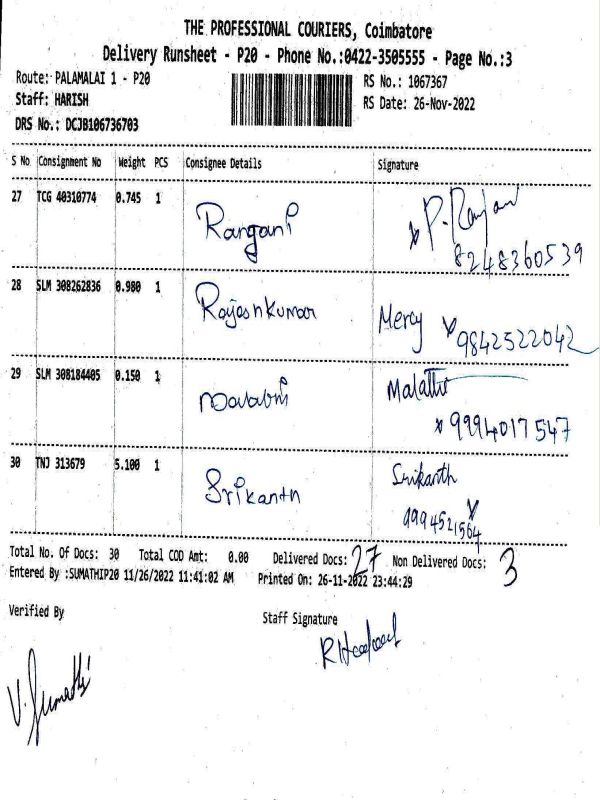 THE PROFESSIONAL COURIERS, Coimbatore
Delivery Runsheet - P20 - Phone No.:0422-3505555 - Page No.:3
Route: PALAMALAI 1 - P20 RS No.: 1067367
Staff: HARISH RS Date: 26-Nov-2022
DRS No.: DCJB106736703
S No Consignment No Weight PCS Consignee Details Signature
27 TCG 40310774 0.745 1 Rangani P. Ranjan
8248360539
28 SLM 308262836 0.980 1 Rajeshkumar Mercy 9842522042
29 SLM 308184405 0.150 1 Malathi
9994017547
30 TNJ 313679 5.100 1 Srikanth Srikanth
9994521564
Total No. Of Docs: 30 Total COD Amt: 0.00 Delivered Docs: 27 Non Delivered Docs: 3
Entered By :SUMATHIP20 11/26/2022 11:41:02 AM Printed On: 26-11-2022 23:44:29
Verified By Staff Signature
V. Sumathi